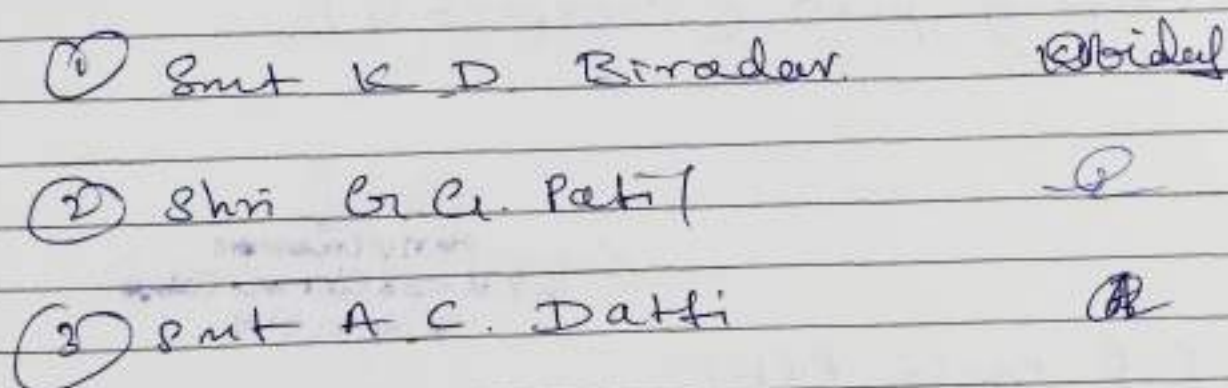 ① Smt K D. Biradar.
② Shri G G. Patil
③ Smt A. C. Datti